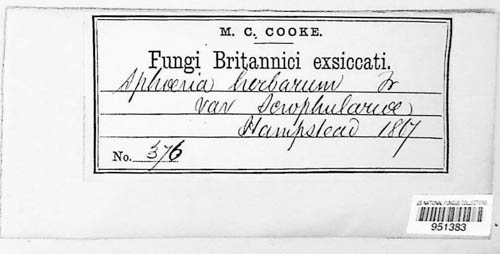 M. C. COOKE.
Fungi Britannici exsiccati.
Sphœria herbarum Fr
var Scrophulariœ
Hampstead 1867
No. 376
US NATIONAL FUNGUS COLLECTIONS
951383